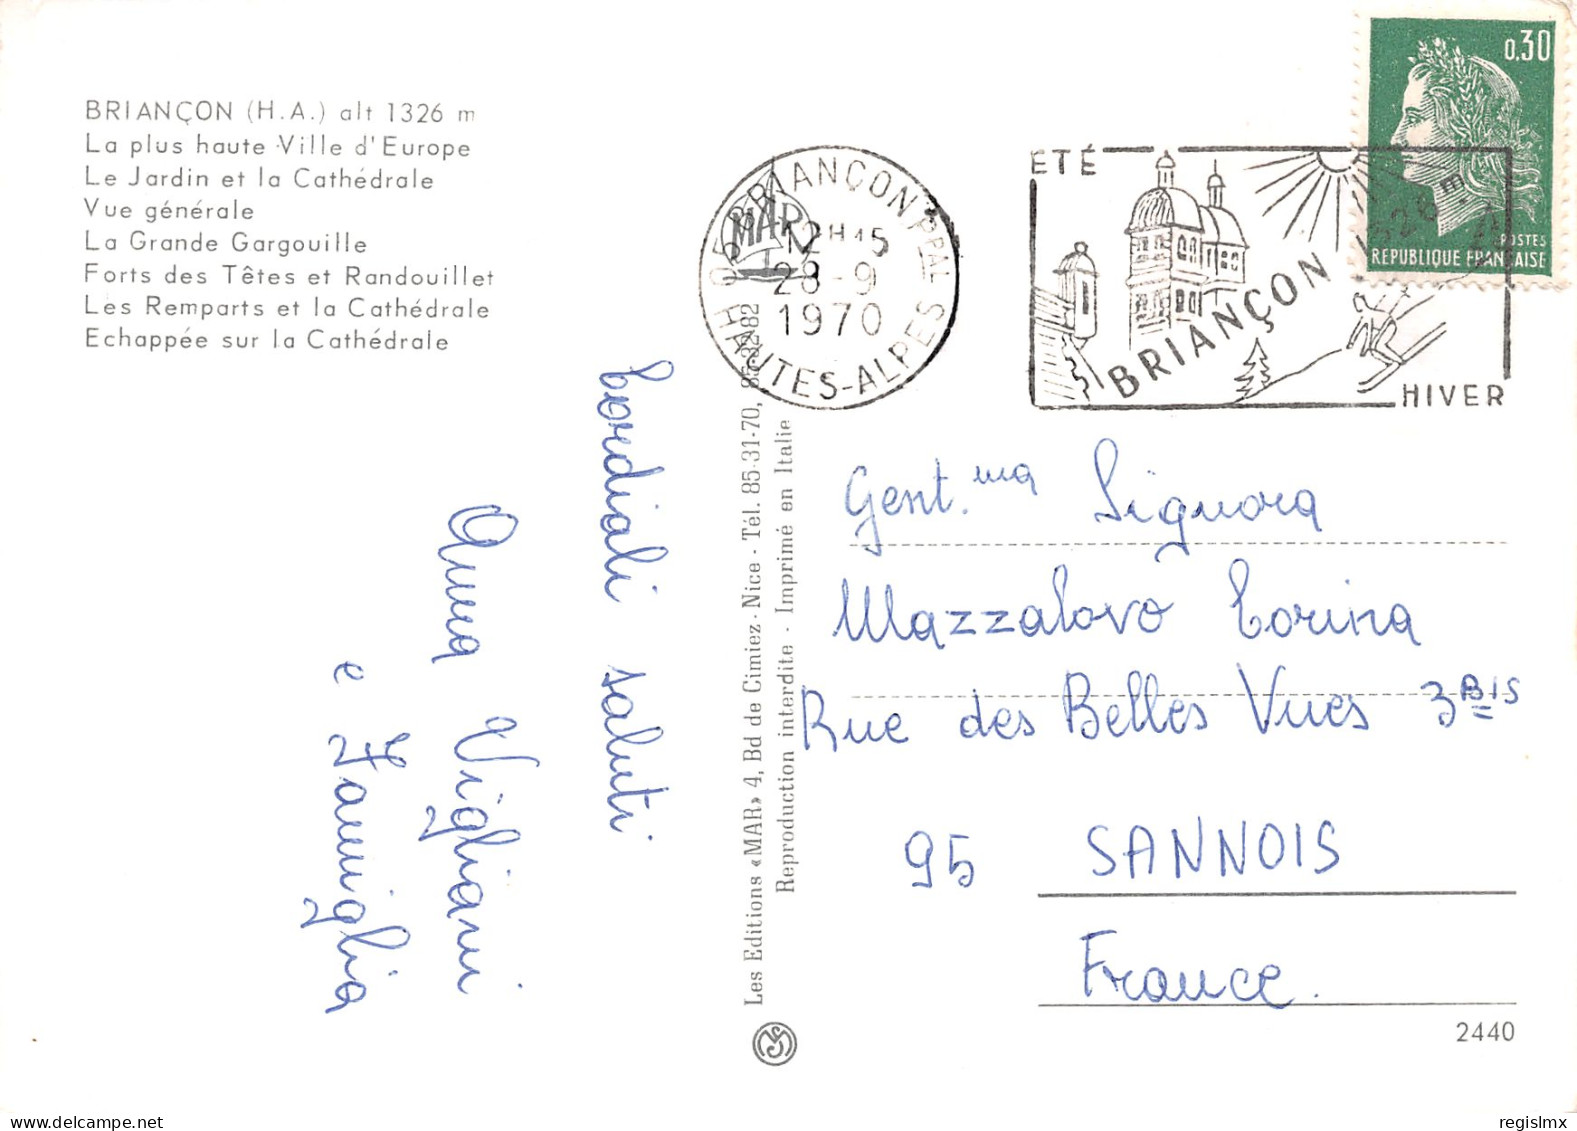 BRIANÇON (H.A.) alt 1326 m
La plus haute Ville d'Europe
Le Jardin et la Cathédrale
Vue générale
La Grande Gargouille
Forts des Têtes et Randouillet
Les Remparts et la Cathédrale
Echappée sur la Cathédrale
cordiali saluti
Anna Vigliani
e Famiglia
Les Editions «MAR» 4, Bd de Cimiez - Nice - Tél. 85-31-70, 85-22-82
Reproduction interdite - Imprimé en Italie
MAR
05 BRIANÇON PPAL
12H15
28-9
1970
HAUTES-ALPES
ETÉ
BRIANÇON 1326 m
HIVER
0,30
POSTES
REPUBLIQUE FRANÇAISE
Gent.ma Signora
Mazzalovo Corina
Rue des Belles Vues 3BIS
95 SANNOIS
France.
2440
delcampe.net
regislmx